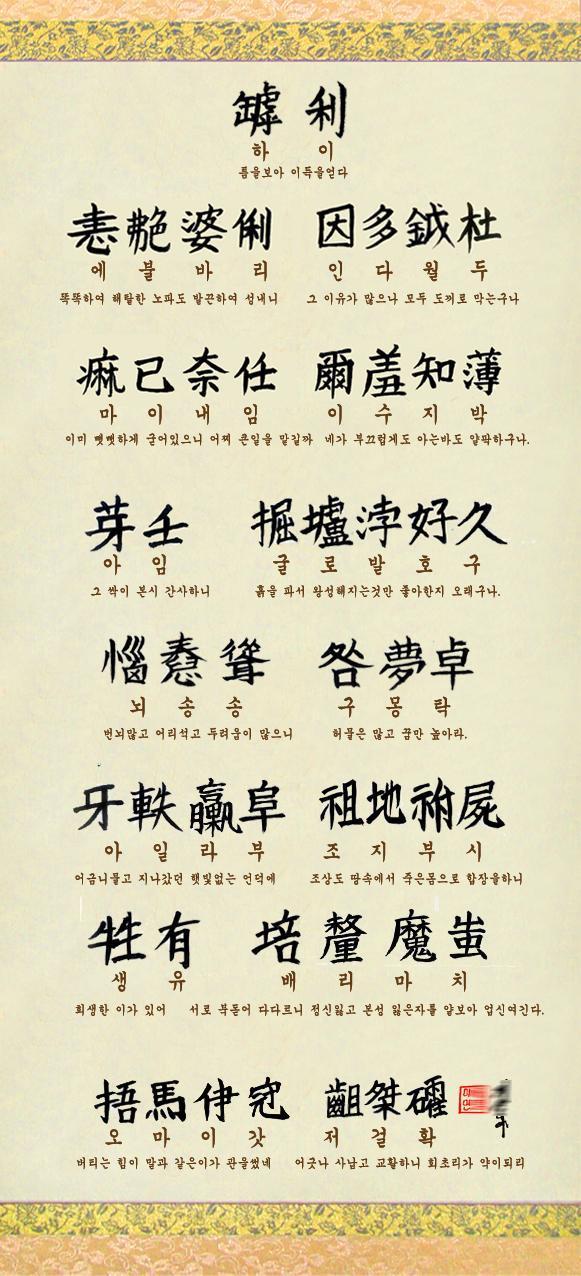 罅 利
하 이
틈을보아 이득을얻다
恚艴婆俐 因多鉞杜
에 불 바 리 인 다 월 두
똑똑하여 해탈한 노파도 발끈하여 성내니 그 이유가 많으나 모두 도끼로 막는구나
痲已奈任 爾羞知薄
마 이 내 임 이 수 지 박
이미 뻣뻣하게 굳어있으니 어찌 큰일을 맡길까 네가 부끄럽게도 아는바도 얄팍하구나.
芽壬 掘壚浡好久
아 임 굴 로 발 호 구
그 싹이 본시 간사하니 흙을 파서 왕성해지는것만 좋아한지 오래구나.
惱憃聳 咎夢卓
뇌 송 송 구 몽 탁
번뇌많고 어리석고 두려움이 많으니 허물은 많고 꿈만 높아라.
牙軼臝阜 祖地祔屍
아 일 라 부 조 지 부 시
어금니물고 지나갔던 햇빛없는 언덕에 조상도 땅속에서 죽은몸으로 합장을하니
牲有 培釐魔蚩
생 유 배 리 마 치
희생한 이가 있어 서로 북돋어 다다르니 정신잃고 본성 잃은자를 얕보아 업신여긴다.
捂馬伊 齟桀
오 마 이 갓 저 걸 확
버티는 힘이 말과 같은이가 관을썼네 어긋나 사납고 교활하니 회초리가 약이되리